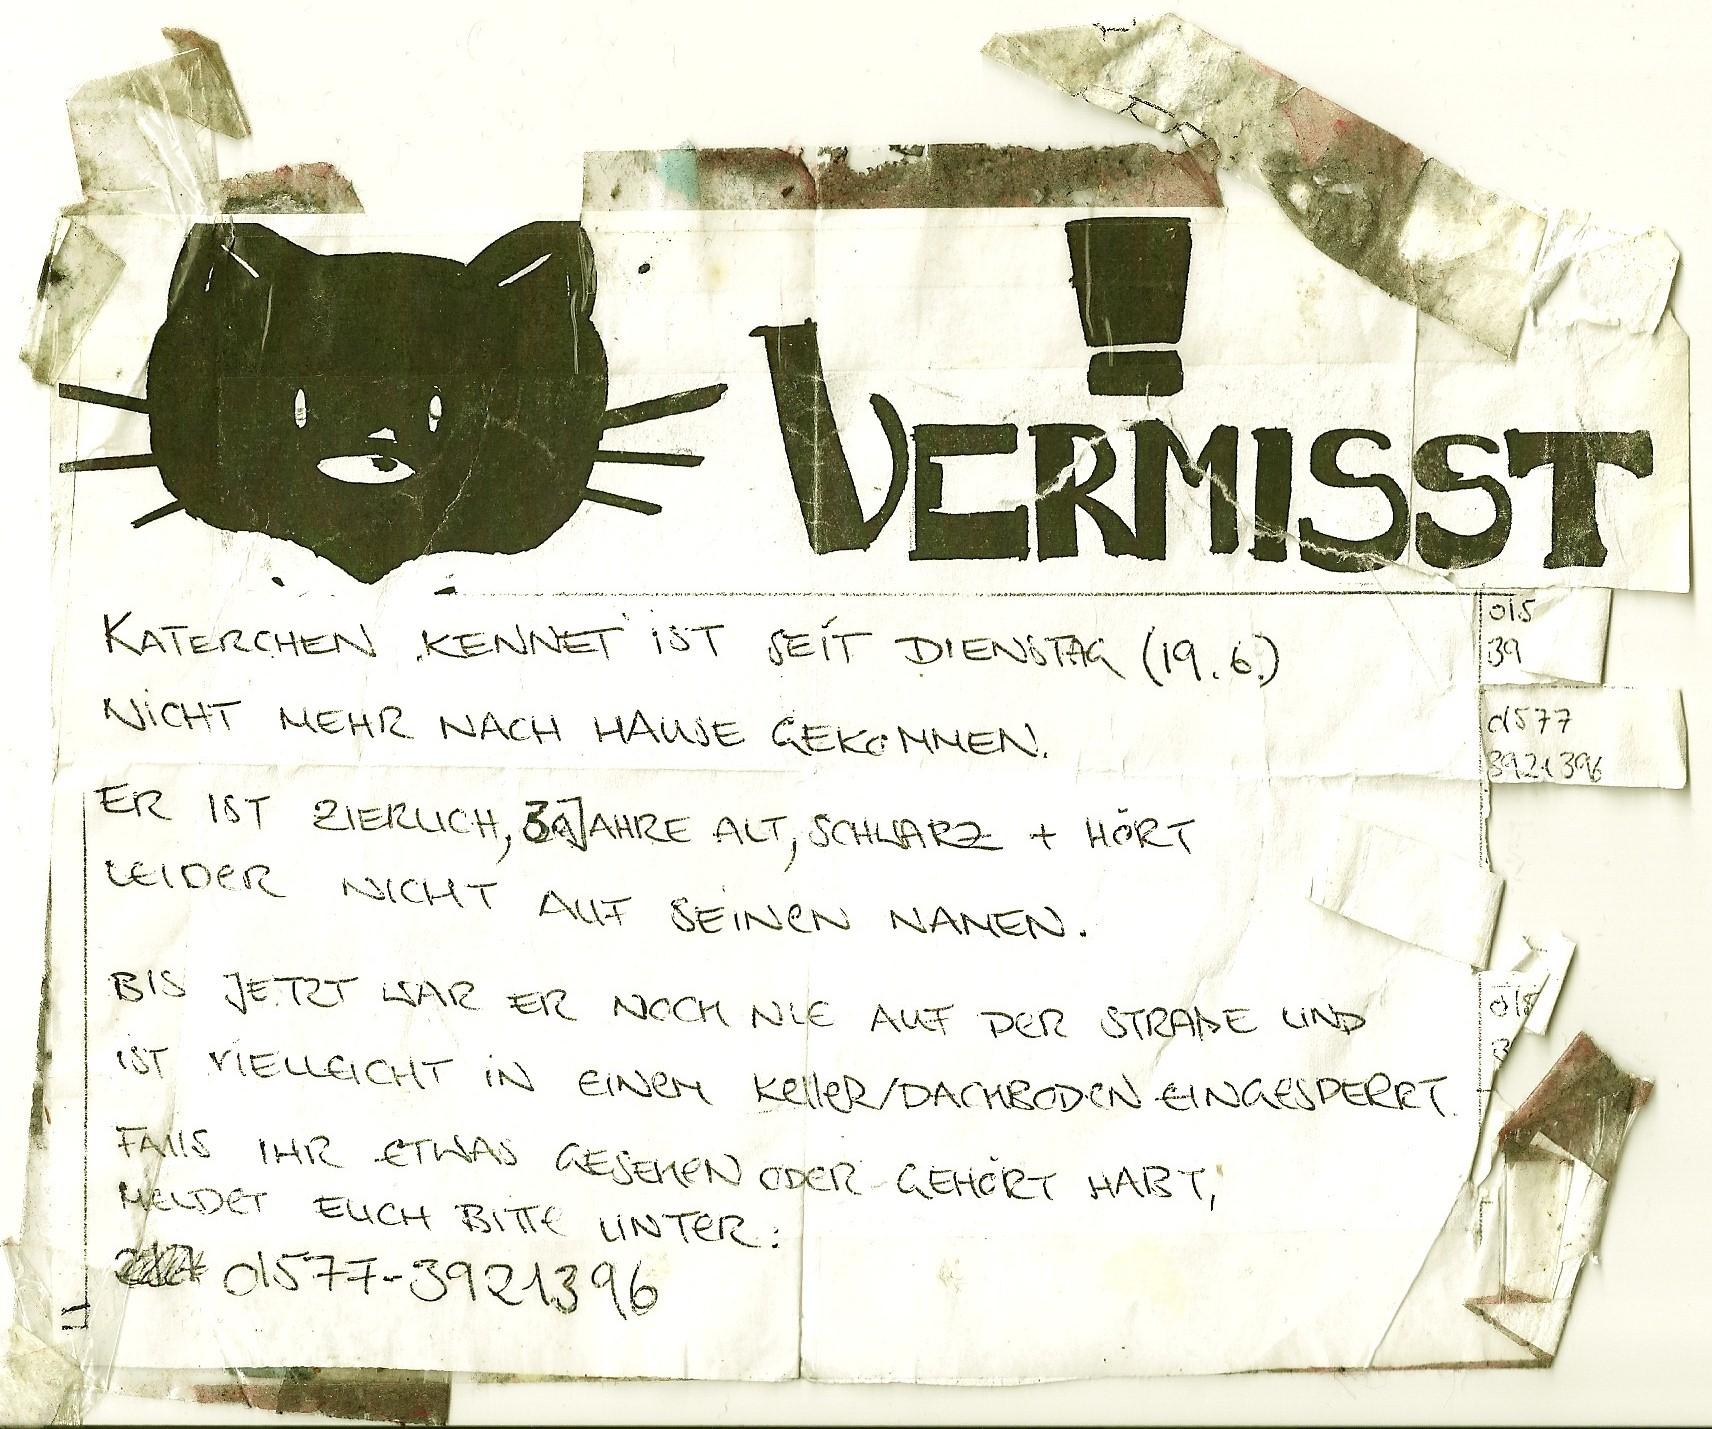 ! VERMISST
KATERCHEN "KENNET" IST SEIT DIENSTAG (19.6.)
NICHT MEHR NACH HAUSE GEKOMMEN.
ER IST ZIERLICH, JAHRE ALT, SCHWARZ + HÖRT
LEIDER NICHT AUF SEINEN NAMEN.
BIS JETZT WAR ER NOCH NIE AUF DER STRAßE UND
IST VIELLEICHT IN EINEM KELLER/DACHBODEN EINGESPERRT.
FALLS IHR ETWAS GESEHEN ODER GEHÖRT HABT,
MELDET EUCH BITTE UNTER:
01577-3921396
015
39
01577
3921396
015
3